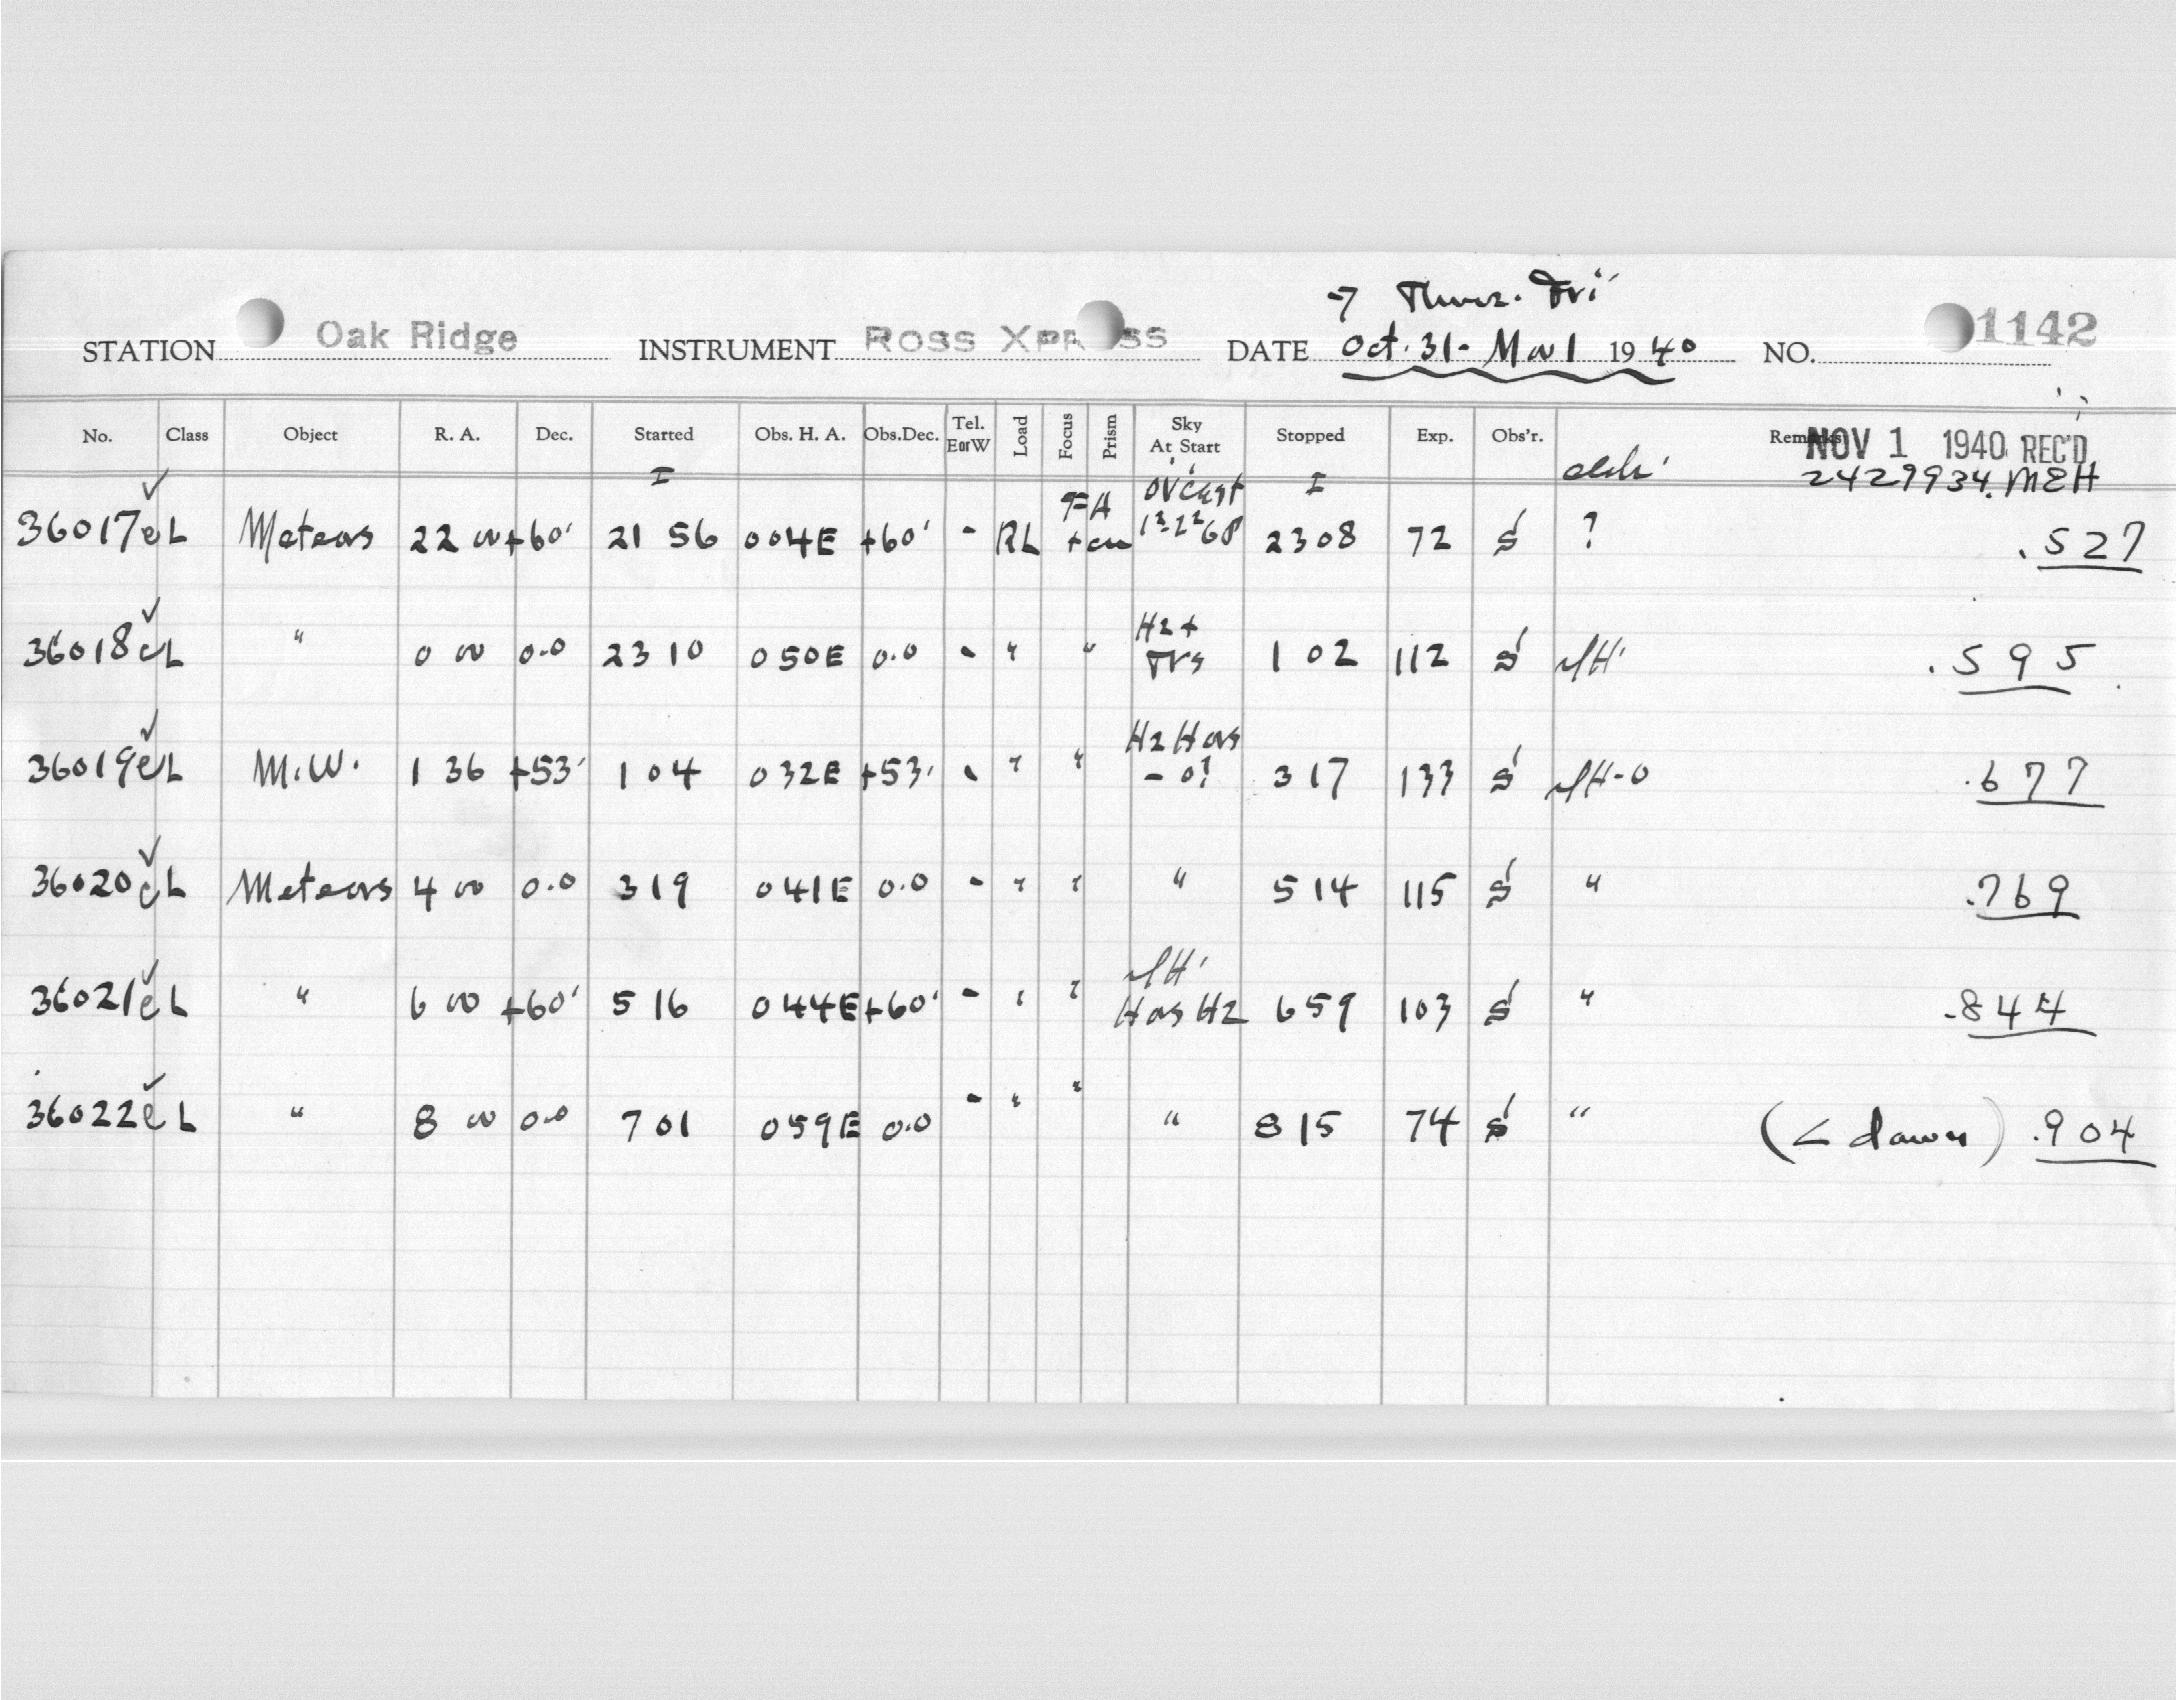 → Thurs. Fri
STATION Oak Ridge INSTRUMENT Ross Xpress DATE Oct. 31 - Nov 1 1940 NO. 1142
No. Class Object R. A. Dec. Started Obs. H. A. Obs.Dec. Tel. E or W Load Focus Prism Sky At Start Stopped Exp. Obs'r. Remarks NOV 1 1940 REC'D
2429934. MEH
36017 e L Meteors 22 00 +60' 21 56 004E +60' - RL FA + cu Ovcast 23 08 72 S ? .527
36018 e L " 0 00 0.0 23 10 050E 0.0 - " " Hz + Trs 1 02 112 S .595
36019 e L M.W. 1 36 +53' 1 04 032E +53' - " " Hz Hors - 0? 3 17 133 S .677
36020 e L Meteors 4 00 0.0 3 19 041E 0.0 - " " " 5 14 115 S " .769
36021 e L " 6 00 +60' 5 16 044E +60' - " " Hors Hz 6 59 103 S " .844
36022 e L " 8 00 0.0 7 01 059E 0.0 - " " " 8 15 74 S " (< dawn) .904